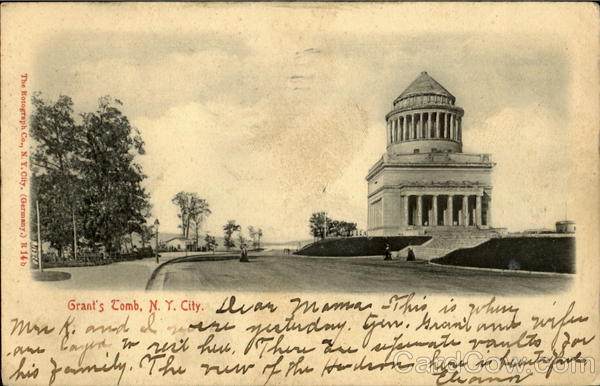 The Rotograph Co., N. Y. City. (Germany.) E 14 b
Grant's Tomb, N. Y. City.
Dear Mama This is where
Mrs K. and I were yesterday. Gen. Grant and wife
are layed to rest here. There are separate vaults for
his family. The view of the Hudson here is beautiful
CardCow.com